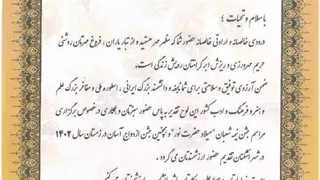 با سلام و تحیات ؛
درودی خالصانه و ارادتی خالصانه حضور شما که مظهر مهر هستید و از تبار یاران ، فروغ مهرتان روشنی
حریم مهرورزی و ریزش ابر کرامتتان رویش زندگی است .
ضمن آرزوی توفیق و سلامتی برای شما بنده و دانشمند بزرگ ایرانی ، اسطوره ملی و مفاخر بزرگ علم
و هنر و فرهنگ و ادب کشور این لوح تقدیر به پاس حضور سبزتان و همکاری در خصوص برگزاری
مراسم جشن نیمه شعبان "میلاد حضرت نور" و همچنین جشن ازدواج آسان در زمستان سال ۱۴۰۲
در شهر اشتهان تقدیم حضور ارزشمندتان می گردد .